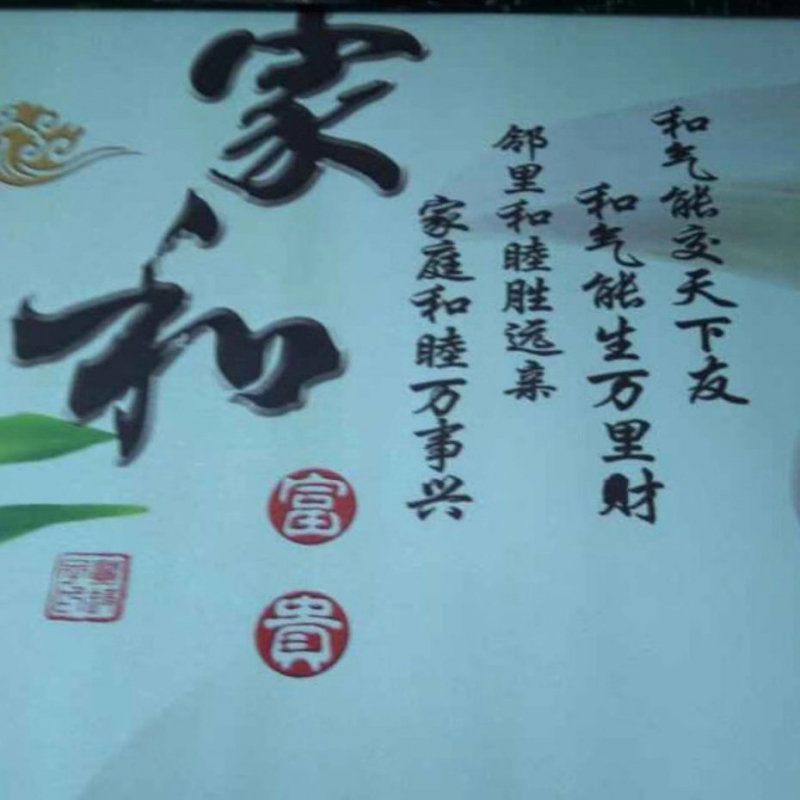 和气能交天下友
和气能生万里财
邻里和睦胜远亲
家庭和睦万事兴
家和
富贵